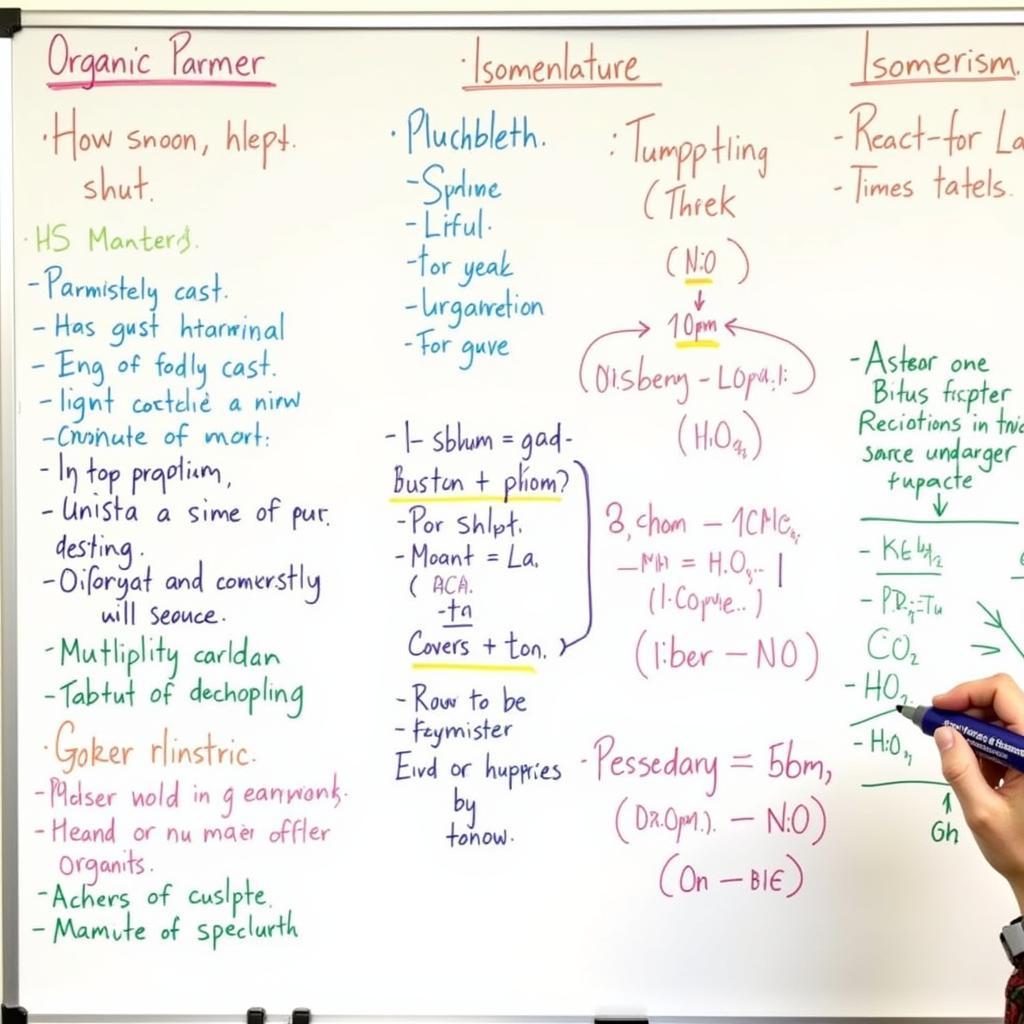 Organic Parmer
·How snoon, hlept.
shut.
·HS Manterd.
-Parmistely cast.
-Has gust htarwinal
-Eng of fodly cast.
-lignt coctclie a nirw
-Cnshute of mort:
-In top prqolium,
-Unista a sime of pur.
desting.
-Oiforyat and comerstly
will seouce.
-Mutliplity carldan
-Tabtut of dechopling
·Goker rlinstric.
-Pldser wold in g eanwonk.
-Heand or nu maer offler
Organits.
-Achers of cuslpte.
-Mamute of speclurth
·Isomenlature
·Pluchbleth.
-Spdine
-Liful.
-for yeak
-Urganretion
-For guve
-1- sblum = gad-
Bustan + phom?
-Por shlpt.
-Moant = La.
( ACA.
-tn
Covers + ton.
-Row to be
-feymister
Eivd or huppries
by
tonow.
:Tumpptling
(Threk
(N:O )
10pm
(Oisbery - LOpa.l:)
(H:O4)
3,chom - 1CMC,
= H.O,..
(1-Copvie.. )
(liber - NO)
·Pessedary = 5bm,
(Dr.Opm.). - N:O)
(On - BIE)
Isomerism.
-React-for La
-Times tatels.
-Astsor one
Bitus ficpter
Reciotions in tnic
sarce undarger
fupacte
- KE
-P.R,=Tu
CO2
-HO2
-H:O,
Gh